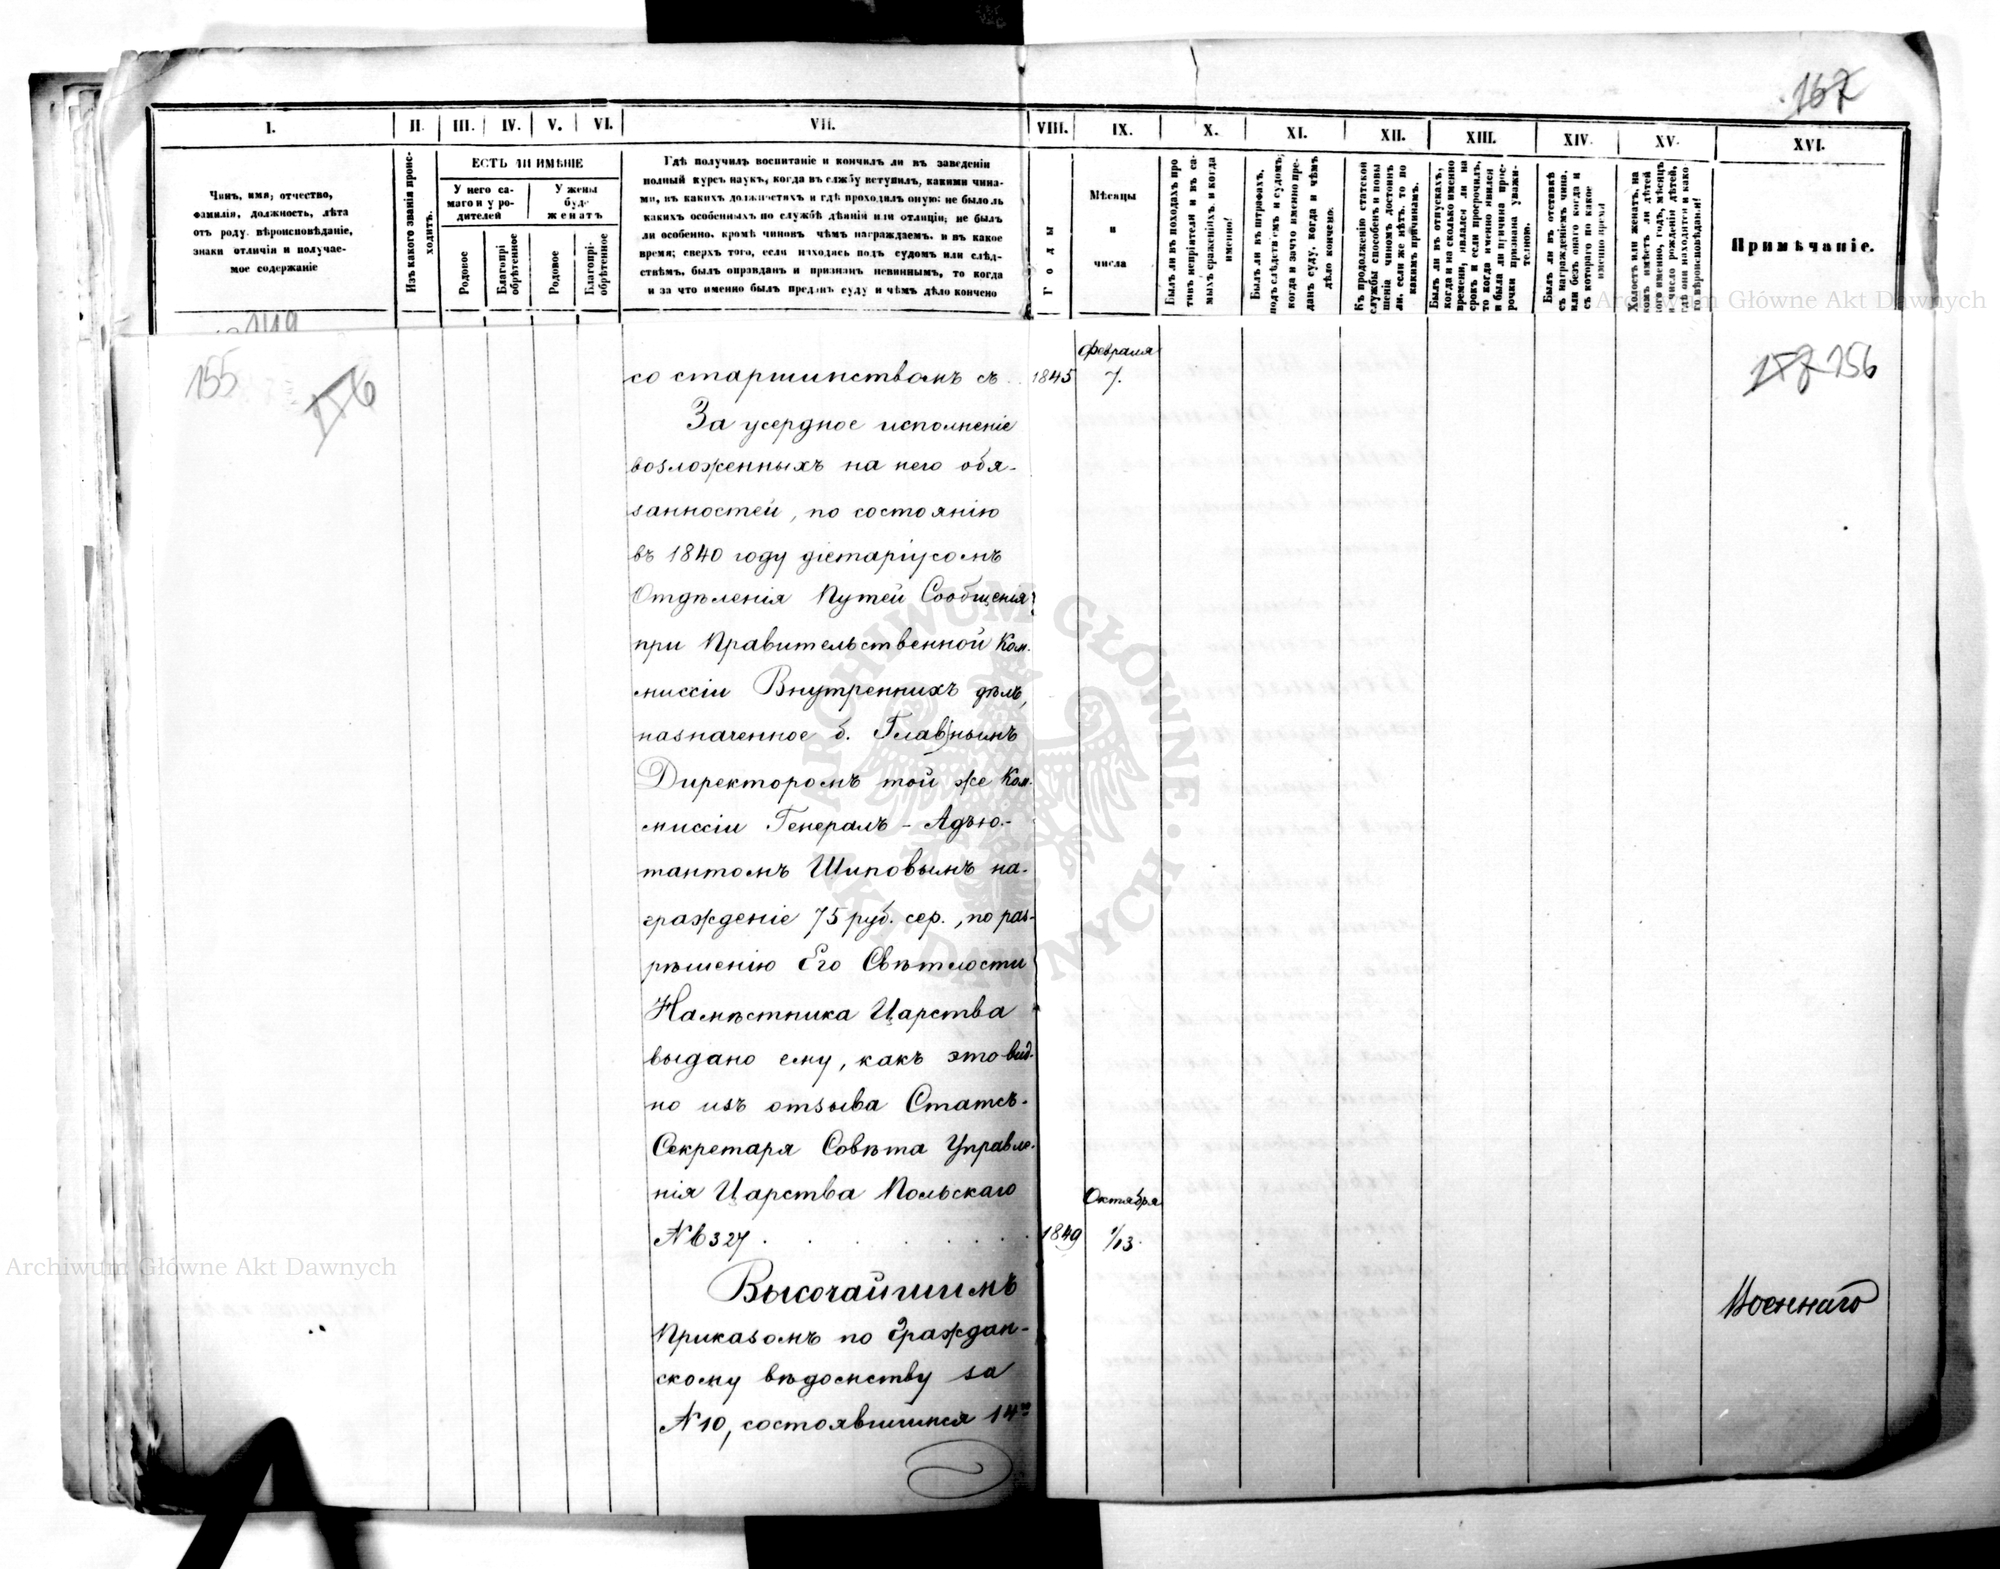 167
I. II. III. IV. V. VI. VII. VIII. IX. X. XI. XII. XIII. XIV. XV. XVI.
Чинъ, имя, отчество,
фамилія, должность, лѣта
отъ роду, вѣроисповѣданіе,
знаки отличія и получае-
мое содержаніе
Изъ какого званія проис-
ходитъ.
ЕСТЬ ЛИ ИМѢНІЕ
У него са-
маго и у ро-
дителей
У жены
буде
женатъ
Родовое
Благопрі-
обрѣтенное
Родовое
Благопрі-
обрѣтенное
Гдѣ получилъ воспитаніе и кончилъ ли въ заведеніи
полный курсъ наукъ, когда въ службу вступилъ, какими чина-
ми, въ какихъ должностяхъ и гдѣ проходилъ оную: не было ль
какихъ особенныхъ по службѣ дѣяній или отличій; не былъ
ли особенно, кромѣ чиновъ чѣмъ награждаемъ, и въ какое
время; сверхъ того, если находясь подъ судомъ или слѣд-
ствіемъ, былъ оправданъ и признанъ невиннымъ, то когда
и за что именно былъ преданъ суду и чѣмъ дѣло кончено
Годы
Мѣсяцы
и
числа
Былъ ли въ походахъ про
тивъ непріятеля и въ са-
мыхъ сраженіяхъ и когда
именно!
Былъ ли въ штрафахъ,
подъ слѣдствіемъ и судомъ;
когда и за что именно пре-
данъ суду, когда и чѣмъ
дѣло кончено.
Къ продолженію статской
службы способенъ и повы
шенія чиномъ достоинъ
ли, если же нѣтъ, то по
какимъ причинамъ.
Былъ ли въ отпускахъ,
когда и на сколько именно
времени; являлся ли на
срокъ и если просрочилъ,
то когда именно явился
и была ли причина прос-
рочки признана уважи-
тельною.
Былъ ли въ отставкѣ
съ награжденіемъ чина,
или безъ онаго когда и
съ котораго по какое
именно время
Холостъ или женатъ, на
комъ имѣетъ ли дѣтей
кого именно, годъ, мѣсяцъ
и число рожденія дѣтей,
гдѣ они находятся и како
го вѣроисповѣданія!
Примѣчаніе.
Archiwum Główne Akt Dawnych
149
155
156
со старшинствомъ съ .. 1845 Февраля 7.
За усердное исполненіе
возложенныхъ на него обя-
занностей, по состоянію
въ 1840 году діетаріусомъ
Отдѣленія Путей Сообщенія
при Правительственной Ком-
миссіи Внутреннихъ дѣлъ,
назначенное б. Главнымъ
Директоромъ той же Ком-
миссіи Генералъ-Адъю-
тантомъ Шиповымъ на-
гражденіе 75 руб. сер., по раз-
рѣшенію Его Свѣтлости
Намѣстника Царства
выдано ему, какъ это вид-
но изъ отзыва Статсъ-
Секретаря Совѣта Управле-
нія Царства Польскаго
№ 6327 . . . . . . 1849 Октября 1/13.
Высочайшимъ
Приказомъ по Граждан-
скому вѣдомству за
№ 10, состоявшимся 14го
Военнаго
ARCHIWUM GŁÓWNE AKT DAWNYCH
Archiwum Główne Akt Dawnych